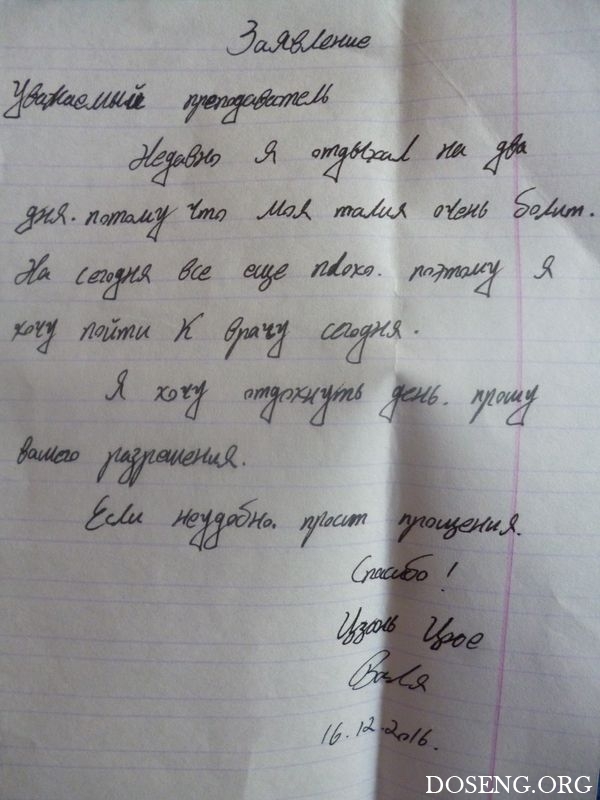 Заявление
Уважаемый преподаватель
Недавно я отдыхал на два
дня. потому что моя талия очень болит.
На сегодня все еще плохо. поэтому я
хочу пойти к врачу сегодня.
Я хочу отдохнуть день. прошу
вашего разрешения.
Если неудобно. просит прощения.
Спасибо!
Цзянь Цюе
Валя
16.12.2016.
DOSENG.ORG